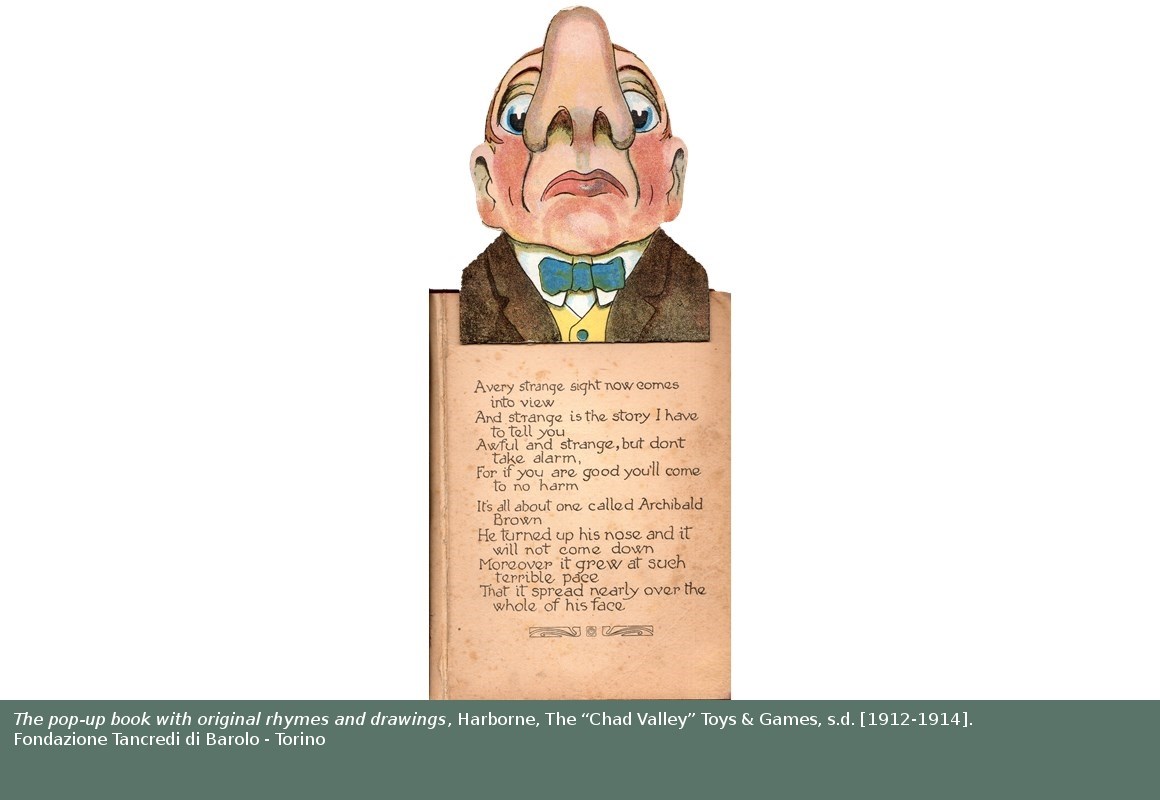 A very strange sight now comes
into view
And strange is the story I have
to tell you
Awful and strange, but dont
take alarm,
For if you are good you'll come
to no harm
It's all about one called Archibald
Brown
He turned up his nose and it
will not come down
Moreover it grew at such
terrible pace
That it spread nearly over the
whole of his face
The pop-up book with original rhymes and drawings, Harborne, The “Chad Valley” Toys & Games, s.d. [1912-1914].
Fondazione Tancredi di Barolo - Torino